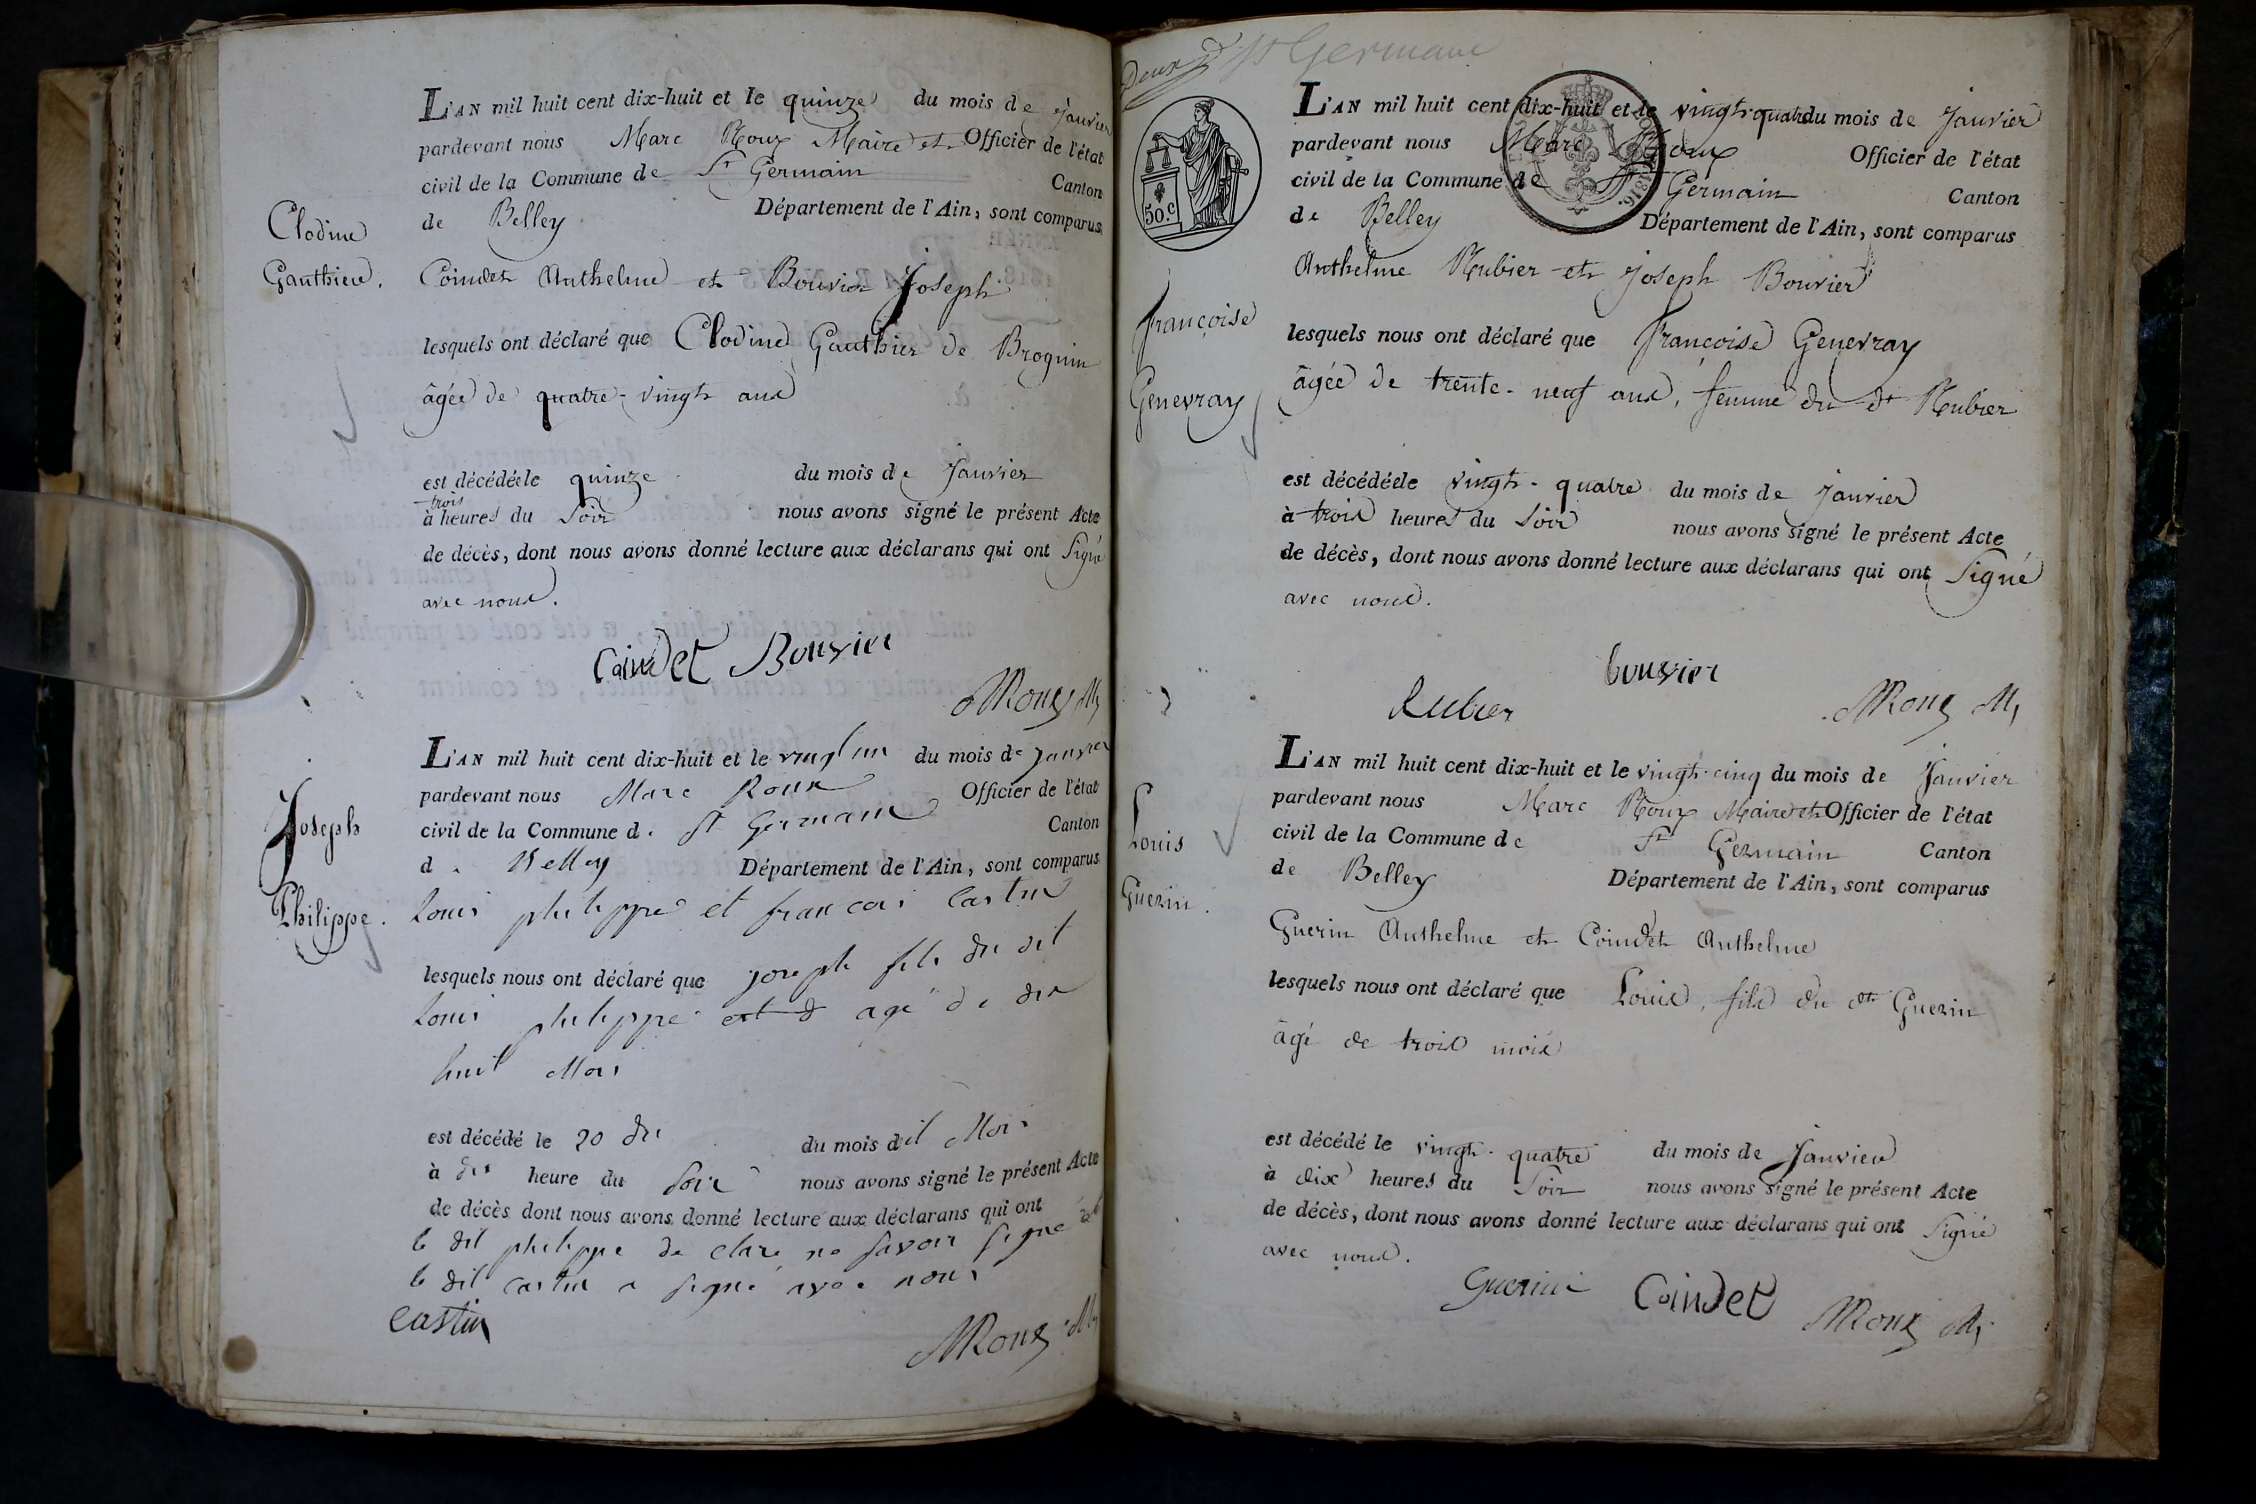 Clodine
Gauthier.
L'AN mil huit cent dix-huit et le quinze du mois de Janvier
pardevant nous Marc Roux Maire et Officier de l'état
civil de la Commune de St Germain Canton
de Belley Département de l'Ain, sont comparus
Coindet Anthelme et Bouvier Joseph
lesquels ont déclaré que Clodine Gauthier de Brognin
âgée de quatre-vingt ans
est décédée le quinze du mois de Janvier
trois
à heures du soir nous avons signé le présent Acte
de décès, dont nous avons donné lecture aux déclarans qui ont signé
avec nous.
Coindet Bouvier
MRoux M
Joseph
Philippe.
L'AN mil huit cent dix-huit et le vingt un du mois de janvier
pardevant nous Marc Roux Officier de l'état
civil de la Commune d. st Germain Canton
d. Belley Département de l'Ain, sont comparus
Louis philippe et francois Castin
lesquels nous ont déclaré que joseph fils du dit
Louis philippe agé de dix
huit Mois
est décédé le 20 du du mois dit Mois
à dix heure du soir nous avons signé le présent Acte
de décès dont nous avons donné lecture aux déclarans qui ont
le dit philippe declaré ne savoir signé et
le dit castin a signé avec nous
castin
MRoux M
Deux St Germain
50.c
1816.
Françoise
Genevray
L'AN mil huit cent dix-huit et le vingt-quatre du mois de Janvier
pardevant nous Marc Roux Officier de l'état
civil de la Commune de St Germain Canton
de Belley Département de l'Ain, sont comparus
Anthelme Rubier et Joseph Bouvier
lesquels nous ont déclaré que françoise Genevray
âgée de trente-neuf ans, femme du dt Rubier
est décédée le vingt-quatre du mois de Janvier
à trois heures du soir nous avons signé le présent Acte
de décès, dont nous avons donné lecture aux déclarans qui ont signé
avec nous.
bouvier
Rubier MRoux M
Louis
Guerin.
L'AN mil huit cent dix-huit et le vingt-cinq du mois de Janvier
pardevant nous Marc Roux Maire et Officier de l'état
civil de la Commune de St Germain Canton
de Belley Département de l'Ain, sont comparus
Guerin Anthelme et Coindet Anthelme
lesquels nous ont déclaré que Louis, fils du dt Guerin
âgé de trois mois
est décédé le vingt-quatre du mois de Janvier
à dix heures du soir nous avons signé le présent Acte
de décès, dont nous avons donné lecture aux déclarans qui ont signé
avec nous.
Guerin Coindet MRoux M